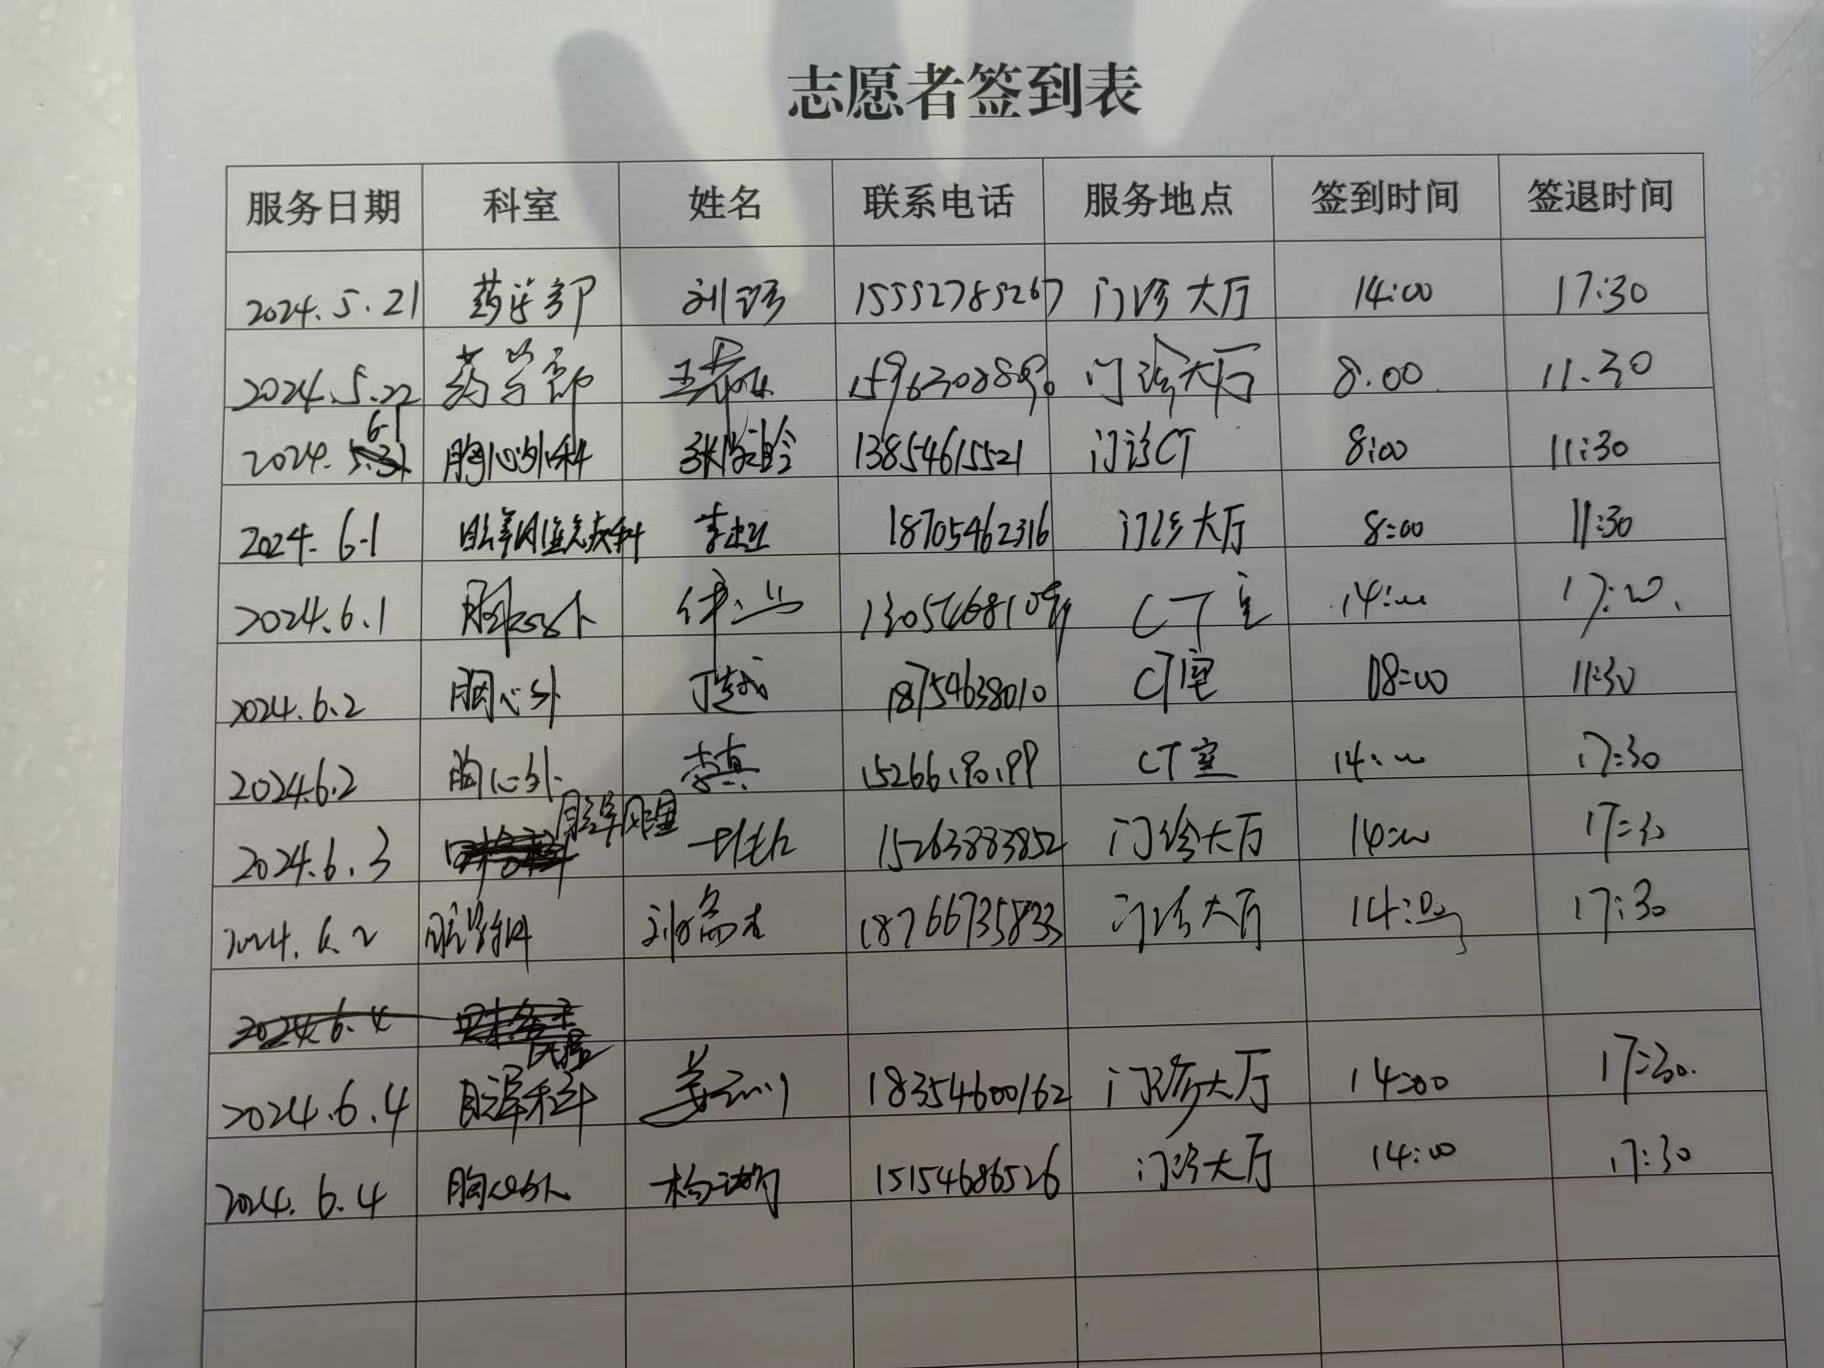 志愿者签到表
服务日期 科室 姓名 联系电话 服务地点 签到时间 签退时间
2024.5.21 药学部 15552785267 门诊大厅 14:00 17:30
2024.5.22 药学部 门诊大厅 8.00 11.30
2024. 6.1 胸心外科 13854615521 门诊CT 8:00 11:30
2024. 6.1 18705462316 门诊大厅 8:00 11:30
2024.6.1 CT室 14:00
2024.6.2 胸心外 丁越 18754638010 CT室 08:00 11:30
2024.6.2 胸心外 李真 CT室 14:00 17:30
2024.6.3 15263883852 门诊大厅 14:00 17:30
2024.6.2 18766735833 门诊大厅 14:00 17:30
2024.6.4
2024.6.4 18354600162 门诊大厅 14:00 17:30
2024.6.4 胸心外 15154686526 门诊大厅 14:00 17:30